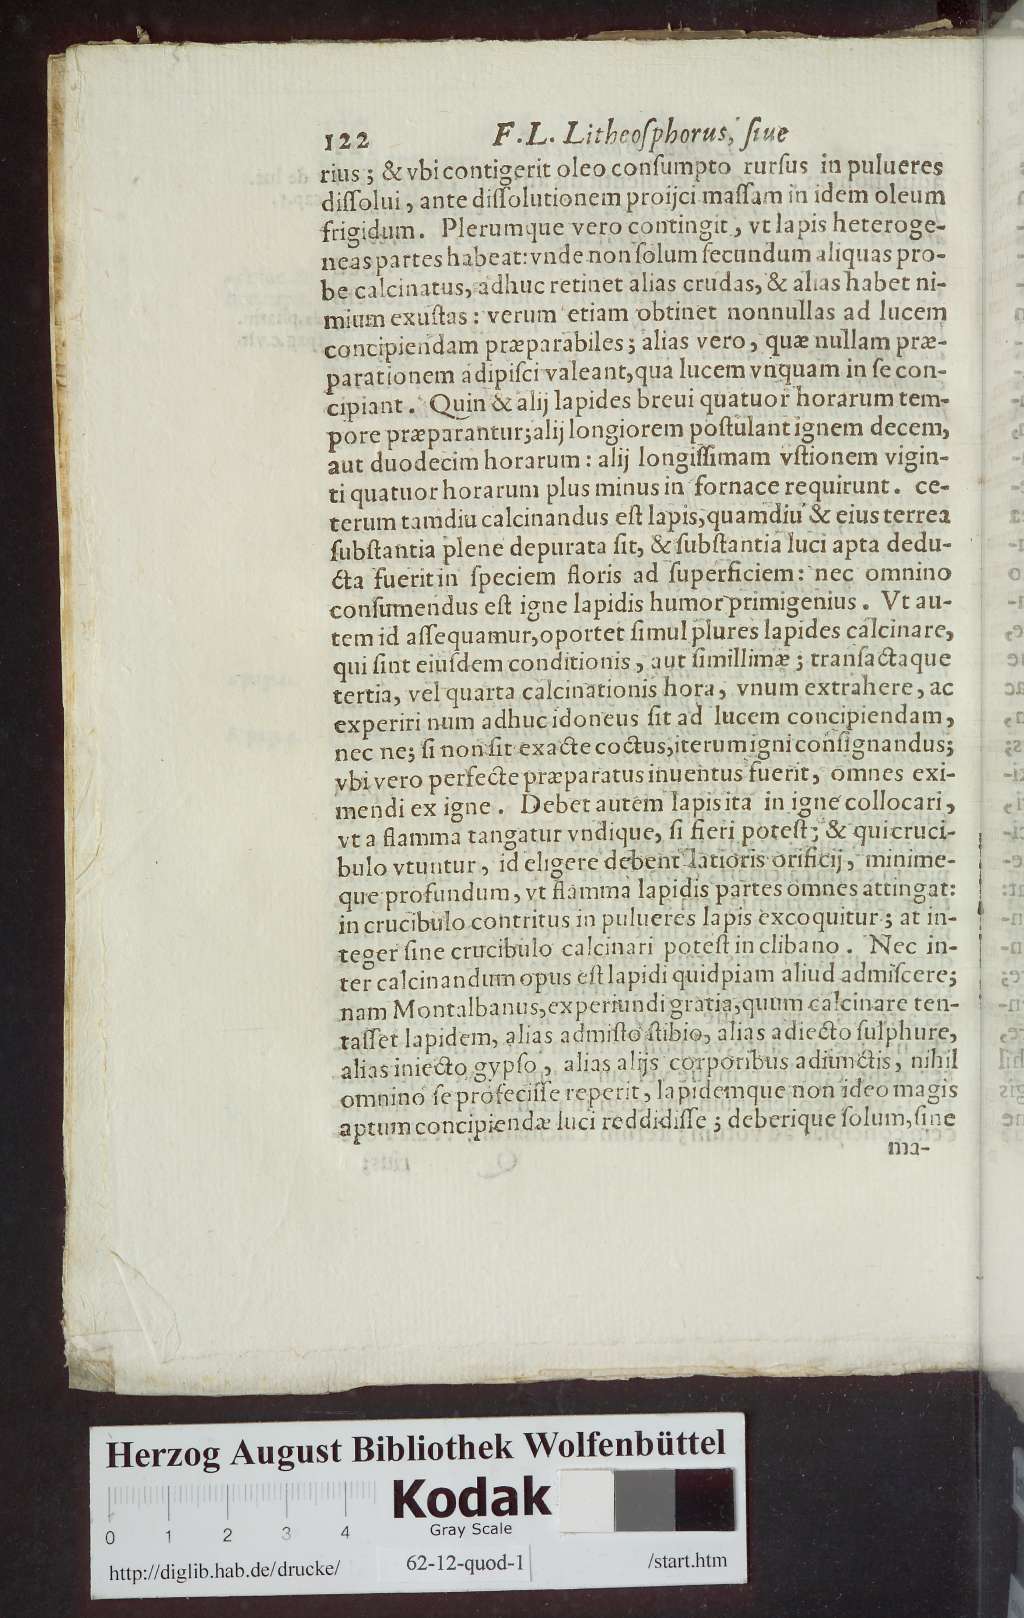 122 F.L. Litheoſphorus, ſiue
rius; & vbi contigerit oleo conſumpto rurſus in pulueres
diſſolui, ante diſſolutionem proijci maſſam in idem oleum
frigidum. Plerumque vero contingit, vt lapis heteroge-
neas partes habeat: vnde non ſolum ſecundum aliquas pro-
be calcinatus, adhuc retinet alias crudas, & alias habet ni-
mium exuſtas: verum etiam obtinet nonnullas ad lucem
concipiendam præparabiles; alias vero, quæ nullam præ-
parationem adipiſci valeant, qua lucem vnquam in ſe con-
cipiant. Quin & alij lapides breui quatuor horarum tem-
pore præparantur; alij longiorem poſtulant ignem decem,
aut duodecim horarum: alij longiſſimam vſtionem vigin-
ti quatuor horarum plus minus in fornace requirunt. ce-
terum tamdiu calcinandus eſt lapis, quamdiu & eius terrea
ſubſtantia plene depurata ſit, & ſubſtantia luci apta dedu-
cta fuerit in ſpeciem floris ad ſuperficiem: nec omnino
conſumendus eſt igne lapidis humor primigenius. Vt au-
tem id aſſequamur, oportet ſimul plures lapides calcinare,
qui ſint eiuſdem conditionis, aut ſimillimæ; tranſactaque
tertia, vel quarta calcinationis hora, vnum extrahere, ac
experiri num adhuc idoneus ſit ad lucem concipiendam,
nec ne; ſi non ſit exacte coctus, iterum igni conſignandus;
vbi vero perfecte præparatus inuentus fuerit, omnes exi-
mendi ex igne. Debet autem lapis ita in igne collocari,
vt a flamma tangatur vndique, ſi fieri poteſt; & qui cruci-
bulo vtuntur, id eligere debent latioris orificij, minime-
que profundum, vt flamma lapidis partes omnes attingat:
in crucibulo contritus in pulueres lapis excoquitur; at in-
teger ſine crucibulo calcinari poteſt in clibano. Nec in-
ter calcinandum opus eſt lapidi quidpiam aliud admiſcere;
nam Montalbanus, experiundi gratia, quum calcinare ten-
taſſet lapidem, alias admiſto ſtibio, alias adiecto ſulphure,
alias iniecto gypſo, alias alijs corporibus adiunctis, nihil
omnino ſe profeciſſe reperit, lapidemque non ideo magis
aptum concipiendæ luci reddidiſſe; deberique ſolum, ſine
ma-
Herzog August Bibliothek Wolfenbüttel
Kodak
Gray Scale
0 1 2 3 4
http://diglib.hab.de/drucke/ 62-12-quod-1 /start.htm